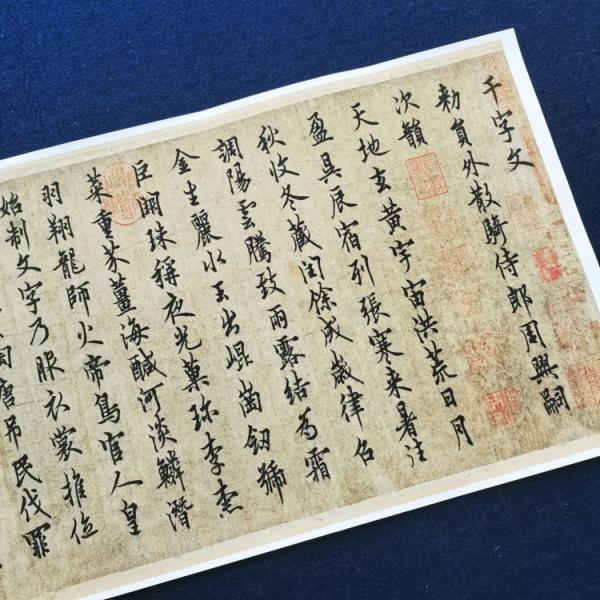 千字文
勑員外散騎侍郎周興嗣
次韻
天地玄黃宇宙洪荒日月
盈昃辰宿列張寒来暑往
秋收冬藏閏餘成歲律召
調陽雲騰致雨露結為霜
金生麗水玉出崐崗劒號
巨闕珠稱夜光菓珍李柰
菜重芥薑海醎河淡鱗潛
羽翔龍師火帝鳥官人皇
始制文字乃服衣裳推位
陶唐吊民伐罪